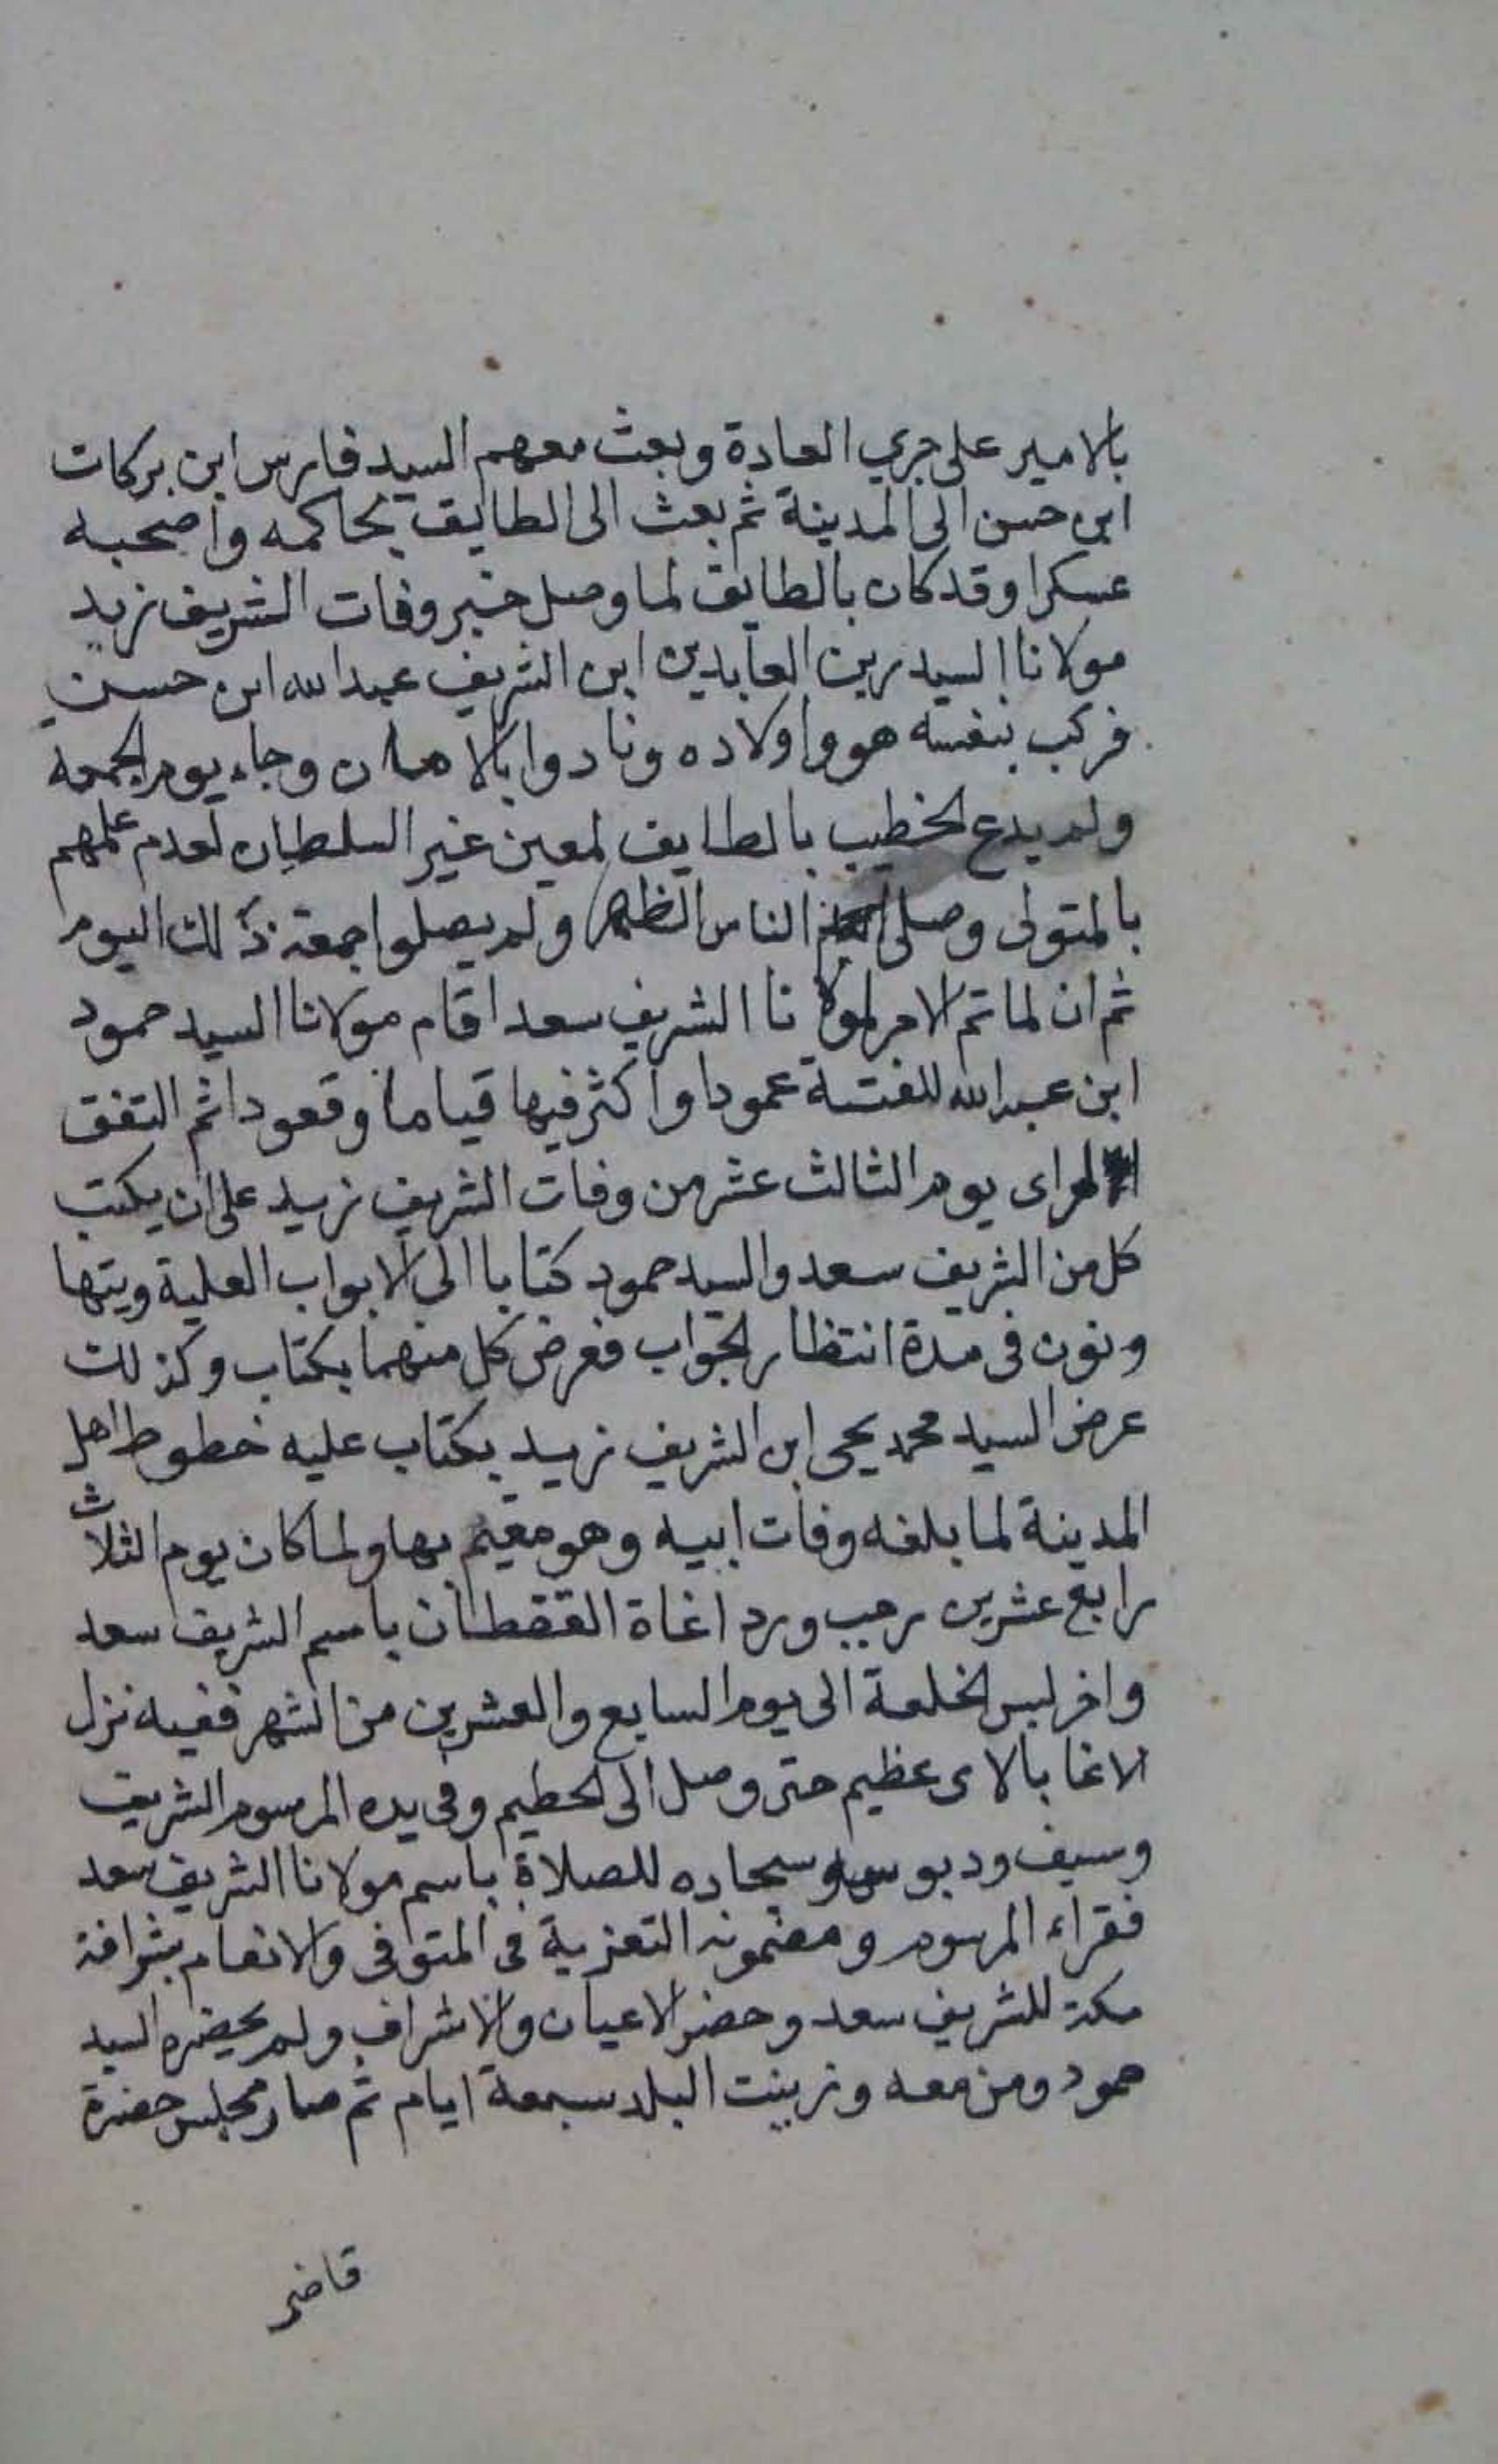 بالامير على جري العادة وبعث معهم السيد فارس ابن بركات
ابن حسن الى المدينة ثم بعث الى الطايف بحاكمه واصحبه
عسكرا وقد كان بالطايف لما وصل خبر وفات الشريف زيد
مولانا السيد زين العابدين ابن الشريف عبد الله ابن حسن
فركب بنفسه هو واولاده ونادوا بالامان وجاء يوم الجمعة
ولم يدع الخطيب بالطايف لمعين غير السلطان لعدم علمهم
بالمتولى وصلى الناس الظهر ولم يصلوا جمعة ذلك اليوم
ثم ان لما تم الامر لمولانا الشريف سعد اقام مولانا السيد حمود
ابن عبد الله للفتنة عمودا واكثر فيها قياما وقعودا ثم اتفق
الراى يوم الثالث عشر من وفات الشريف زيد على ان يكتب
كل من الشريف سعد والسيد حمود كتابا الى الابواب العلية ويتها
ونون فى مدة انتظار الجواب فعرض كل منهما بكتاب وكذلك
عرض السيد محمد يحيى ابن الشريف زيد بكتاب عليه خطوط اهل
المدينة لما بلغه وفات ابيه وهو مقيم بها ولما كان يوم الثلاث
رابع عشرين رجب ورد اغاة القفطان باسم الشريف سعد
واخر لبس الخلعة الى يوم السابع والعشرين من الشهر ففيه نزل
الاغا بالاى عظيم حتى وصل الى الحطيم وفى يده المرسوم الشريف
وسيف ودبوس وسجاده للصلاة باسم مولانا الشريف سعد
فقراء المرسوم ومضمونه التعزية فى المتوفى والانعام بشرافة
مكة للشريف سعد وحضر الاعيان والاشراف ولم يحضره السيد
حمود ومن معه وزينت البلد سبعة ايام ثم صار مجلس حضرة
قاضى